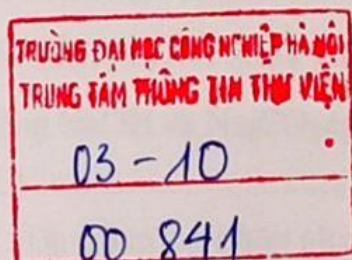 TRƯỜNG ĐẠI HỌC CÔNG NGHIỆP HÀ NỘI
TRUNG TÂM THÔNG TIN THƯ VIỆN
03 - 10
00 841